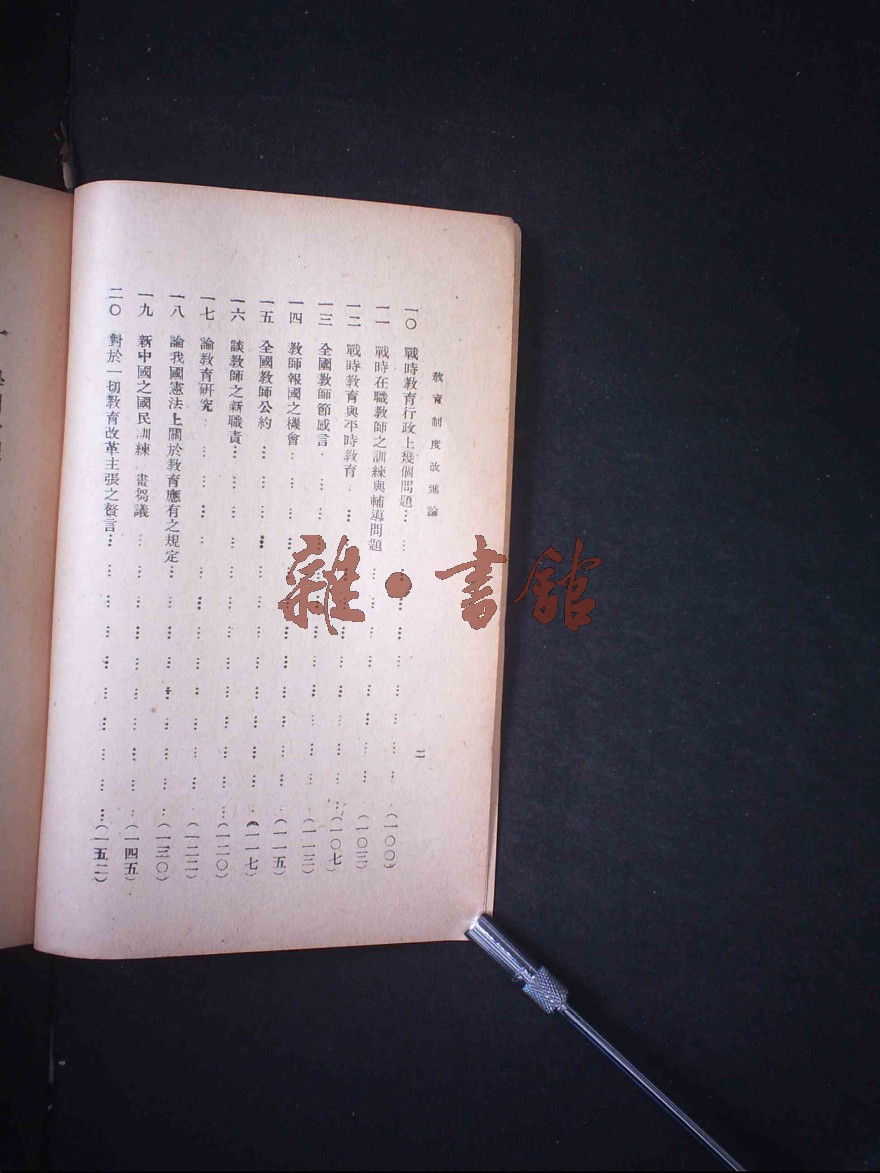 教育制度改進論
二
一〇 戰時教育行政上幾個問題……(一〇〇)
一一 戰時在職教師之訓練與輔導問題……(一〇三)
一二 戰時教育與平時教育……(一〇七)
一三 全國教師節感言……(一一三)
一四 教師報國之機會……(一一五)
一五 全國教師公約……(一一七)
一六 談教師之新職責……(一二〇)
一七 論教育研究……(一二二)
一八 論我國憲法上關於教育應有之規定……(一三〇)
一九 新中國之國民訓練 畫芻議……(一四五)
二〇 對於一切教育改革主張之贅言……(一五二)
雜·書館